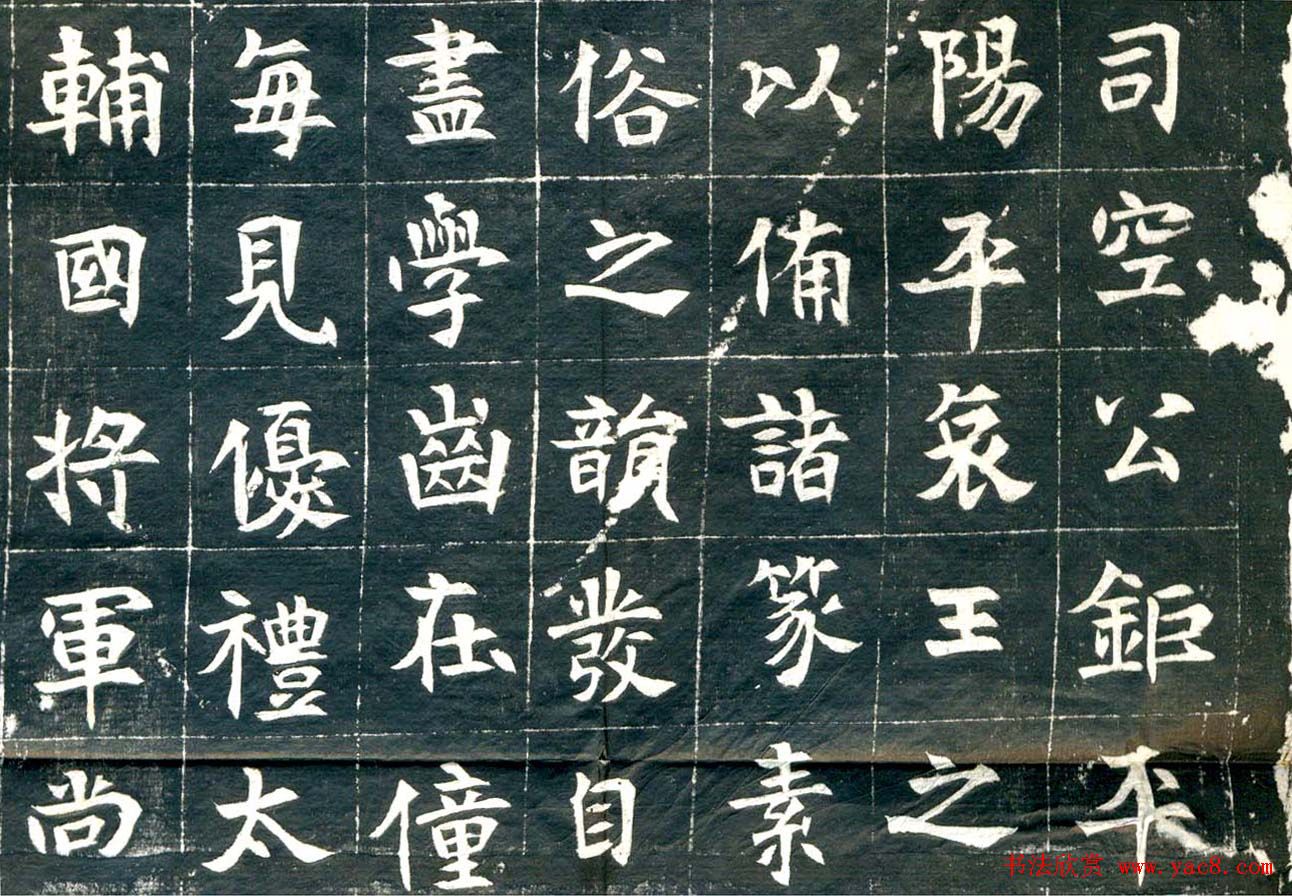 司空公鉅平
陽平哀王之
以俻諸篆素
俗之韻發自
盡學齒在僮
每見優禮太
輔國將軍尚
书法欣赏 www.yac8.com